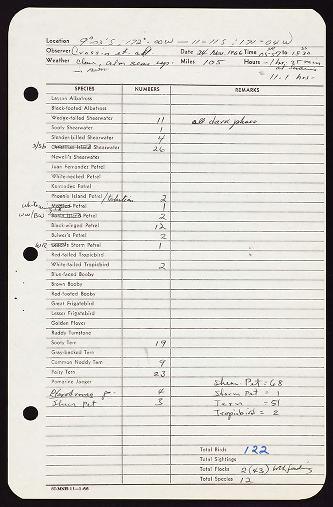 Location 9° 03' S 172° 00W — 11-11 S / 171-04W
Observer Crossin et. al. Date 24 Nov. 1966 Time
Weather clear, Miles 105 Hours
11.1 hrs.
SPECIES NUMBERS REMARKS
Laysan Albatross
Black-footed Albatross
Wedge-tailed Shearwater 11 all dark phase
Sooty Shearwater 1
Slender-billed Shearwater 4
Christmas Island Shearwater 26
Newell's Shearwater
Juan Fernandez Petrel
White-necked Petrel
Kermadec Petrel
Phoenix Island Petrel / 2
Mottled Petrel 1
Petrel 2
Black-winged Petrel 12
Bulwer's Petrel 2
WR Leach's Storm Petrel 1
Red-tailed Tropicbird
White-tailed Tropicbird 2
Blue-faced Booby
Brown Booby
Red-footed Booby
Great Frigatebird
Lesser Frigatebird
Golden Plover
Ruddy Turnstone
Sooty Tern 19
Gray-backed Tern
Common Noddy Tern 9
Fairy Tern 23
Pomarine Jaeger Shear Pet = 68
4 Storm Pet = 1
Shear Pet 3 Tern = 51
Tropicbird = 2
Total Birds 122
Total Sightings
Total Flocks 2 (43) both feeding
Total Species 12